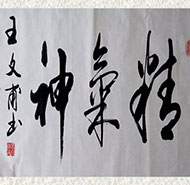 精氣神
王文甫书